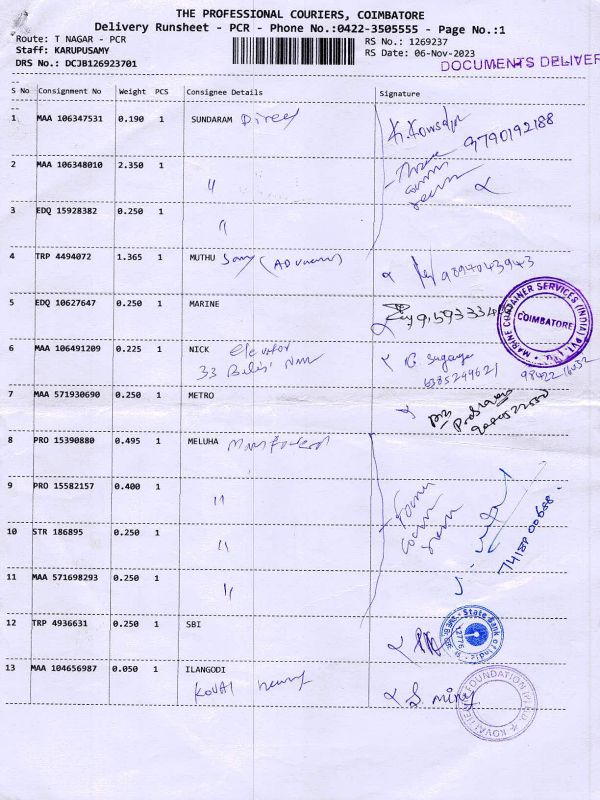 THE PROFESSIONAL COURIERS, COIMBATORE
Delivery Runsheet - PCR - Phone No.:0422-3505555 - Page No.:1
Route: T NAGAR - PCR
RS No.: 1269237
Staff: KARUPUSAMY
RS Date: 06-Nov-2023
DRS No.: DCJB126923701
DOCUMENTS DELIVER
S No Consignment No Weight PCS Consignee Details Signature
1 MAA 106347531 0.190 1 SUNDARAM Direct
9790192188
2 MAA 106348010 2.350 1 "
3 EDQ 15928382 0.250 1 "
4 TRP 4494072 1.365 1 MUTHU
9894043943
5 EDQ 10627647 0.250 1 MARINE
MARINE CONTAINER SERVICES (INDIA) PVT
COIMBATORE
6 MAA 106491209 0.225 1 NICK Elevator
33
6385249621
7 MAA 571930690 0.250 1 METRO
8 PRO 15390880 0.495 1 MELUHA
9 PRO 15582157 0.400 1 "
74188 00688
10 STR 186895 0.250 1 "
11 MAA 571698293 0.250 1 "
12 TRP 4936631 0.250 1 SBI
State Bank of India
13 MAA 104656987 0.050 1 ILANGODI
KOVAI
FOUNDATION